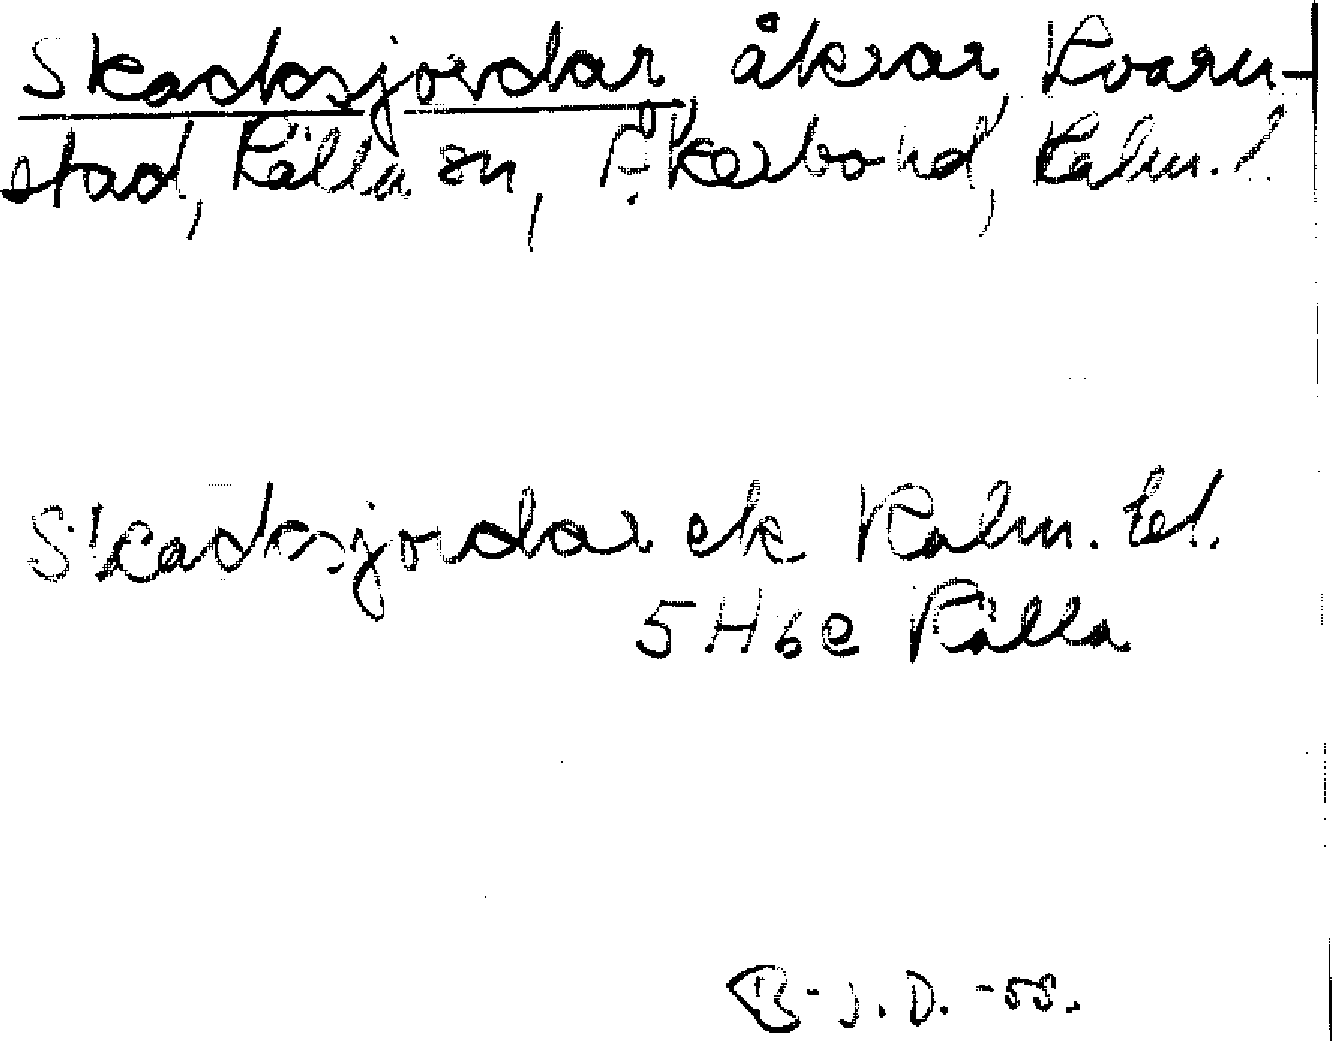 Skadsjordar, åkrar, Kvarn-
stad, Källa sn, Åkerbo hd, Kalm. l.
Skadsjordar ek Kalm. l.
5H6e Källa
B-J.D. -55.